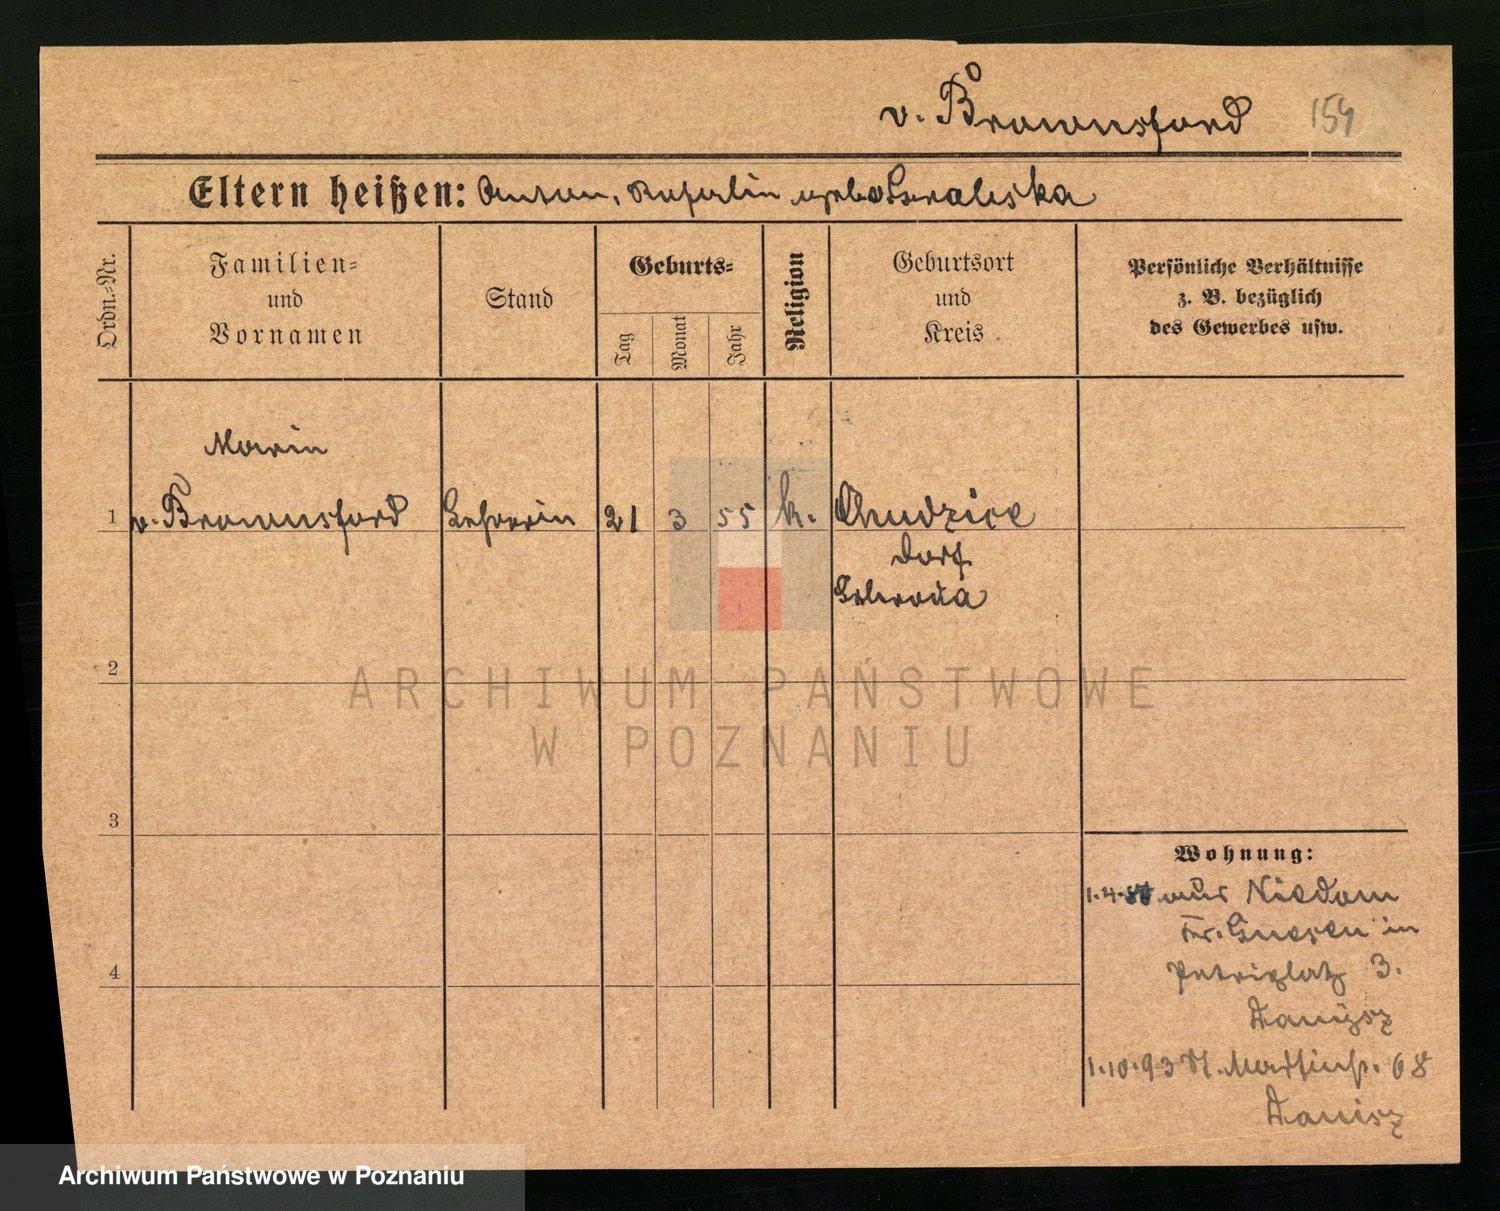 v. Brownsford 154
Eltern heißen: Anton, Rosalin geb. Goralska
Ordn.-Nr.
Familien-
und
Vornamen
Stand
Geburts-
Tag
Monat
Jahr
Religion
Geburtsort
und
Kreis
Persönliche Verhältnisse
z. B. bezüglich
des Gewerbes usw.
Marie
1 v. Brownsford Lehrerin 21 3 55 k. Chudzice
Dorf
Schroda
2
3
4
Wohnung:
1.4. aus Niedom
Kr. Gnesen in
Petriplatz 3.
Danysz
1.10.93 St. Martinstr. 68
Danisz
ARCHIWUM PAŃSTWOWE
W POZNANIU
Archiwum Państwowe w Poznaniu